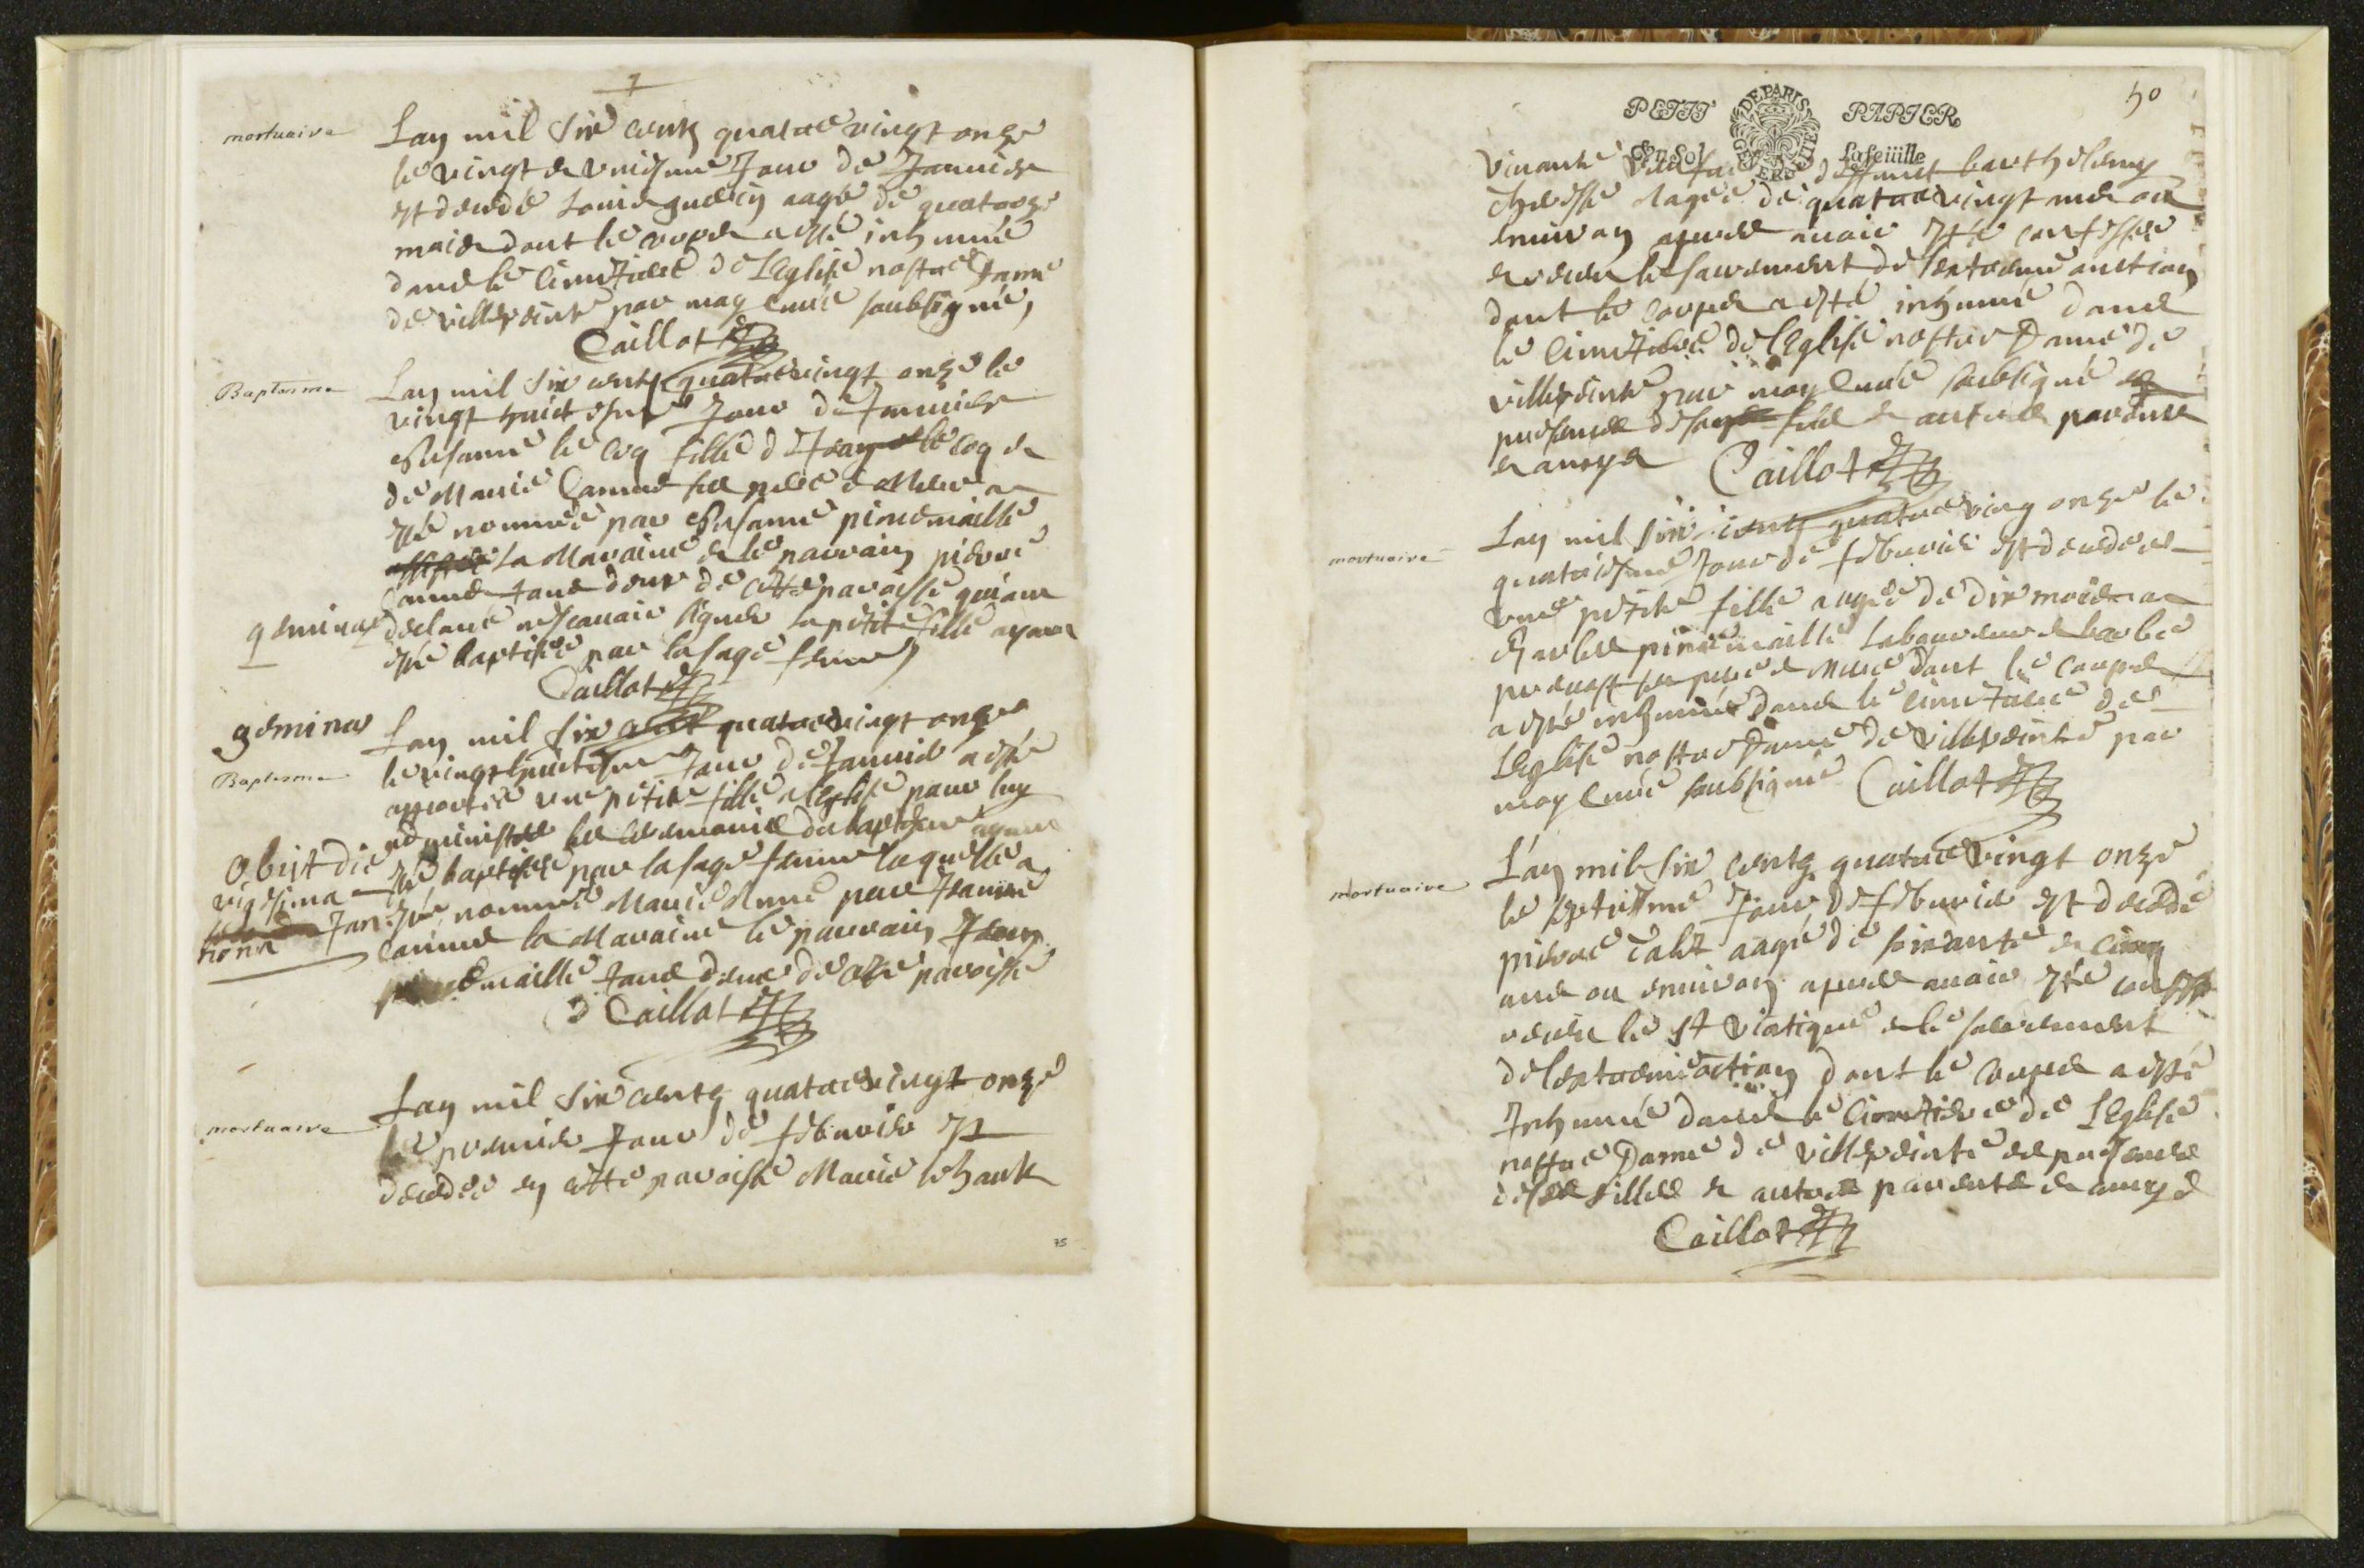 7
mortuaire
Lan mil six centz quatre vingt onze
le vingt et uniesme Jour de Januier
est decedé Louis guerin aagé de quatorze
mois dont le corps a esté inhumé
dans le Cimetiere de L'Eglise nostre Dame
de villepeinte par moy Curé soubsigné,
Caillot
Baptesme
Lan mil six centz quatre vingt onze le
vingt huict esme Jour de Januier
Susanne le coq fille de Jean le coq et
de Marie Camus ses pere et Mere a
esté nommée par Susanne piedemaille
la Maraine et le parrain pierre
Camus tous deux de cette paroisse qui ont
geminae
declaré ne scauoir signer la petite fille ayant
esté baptisée par la sage femme
Caillot
geminae
Lan mil six cent quatre vingt onze
Baptesme
le vingt huictesme Jour de Januier a esté
apportée une petite fille a l'eglise pour luy
administrer les ceremonies du baptesme ayant
obijt die
esté baptisée par la sage femme laquelle a
vigesima
esté nommée Marie Anne par Jeanne
nona
Jan.
Camus la Maraine le parrain Jean
piedemaille tous deux de cette paroisse
Caillot
mortuaire
Lan mil six centz quatre vingt onze
le premier Jour de februier est
decedée en cette paroisse Marie
75
50
PETIT PAPIER
GEN. DE PARIS
Un Sol La feüille
viuante defunct barthelemy
aagée de quatre vingt ans ou
enuiron apres auoir esté confessée
et receu le sacrement de lextreme onction
dont le corps a esté inhumé dans
le Cimetiere de l'Eglise nostre Dame de
villepeinte par moy Curé soubsigné en
presence de fils et autres parens
et amys Caillot
mortuaire
Lan mil six centz quatre ving onze le
quatriesme Jour de februier est decedée
une petite fille aagée de dix mois a
Charles piedemaille Laboureur et barbe
preuost ses pere et Mere dont le corps
a esté inhumé dans le Cimetiere de
L'Eglise nostre Dame de villepeinte par
moy Curé soubsigné Caillot
mortuaire
L'an mil six centz quatre vingt onze
le septiesme Jour de februier est decedé
pierre aagé de soixante et cinq
ans ou enuiron apres auoir esté confessé
receu le St viatique et le sacrement
de lextreme onction dont le corps a esté
Inhumé dans le Cimetiere de L'Eglise
nostre Dame de villepeinte en presence
de ses filles et autres parents et amys
Caillot